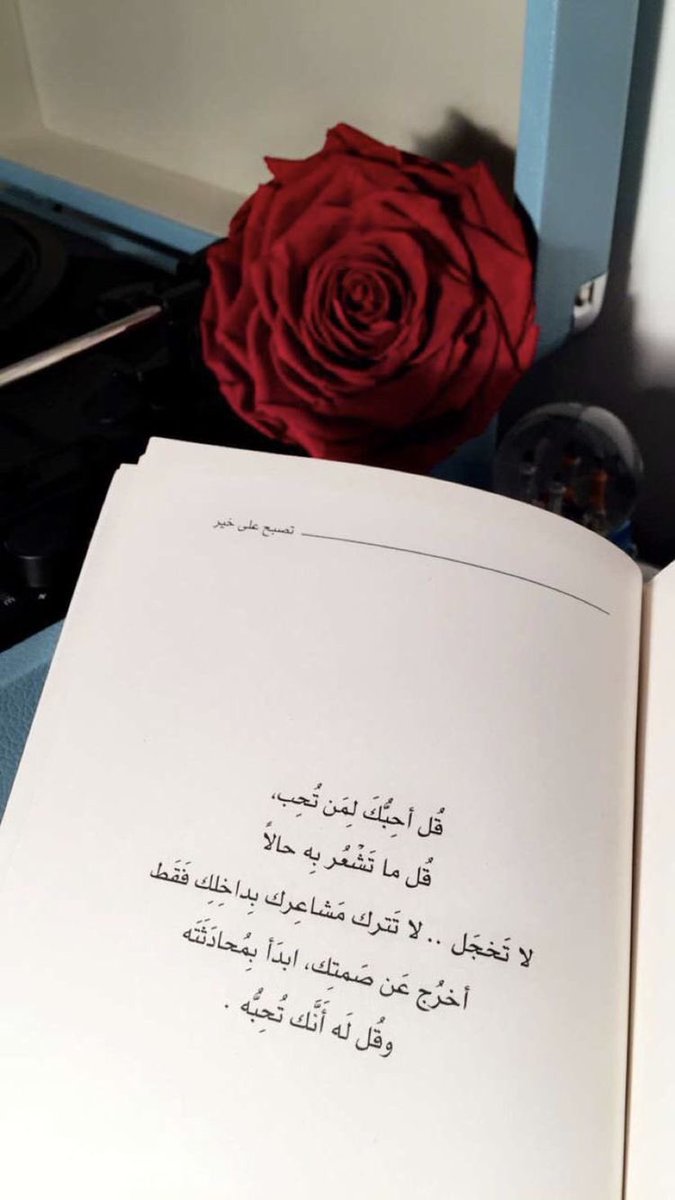 تصبح على خير
قُل أحِبُّكَ لِمَن تُحِب،
قُل ما تَشْعُر بِه حالاً
لا تَخجَل .. لا تَترك مَشاعِرك بِداخِلِك فَقَط
أخرُج عَن صَمتِك، ابدَأ بِمُحادَثَتَه
وقُل لَه أَنَّك تُحِبُّه .